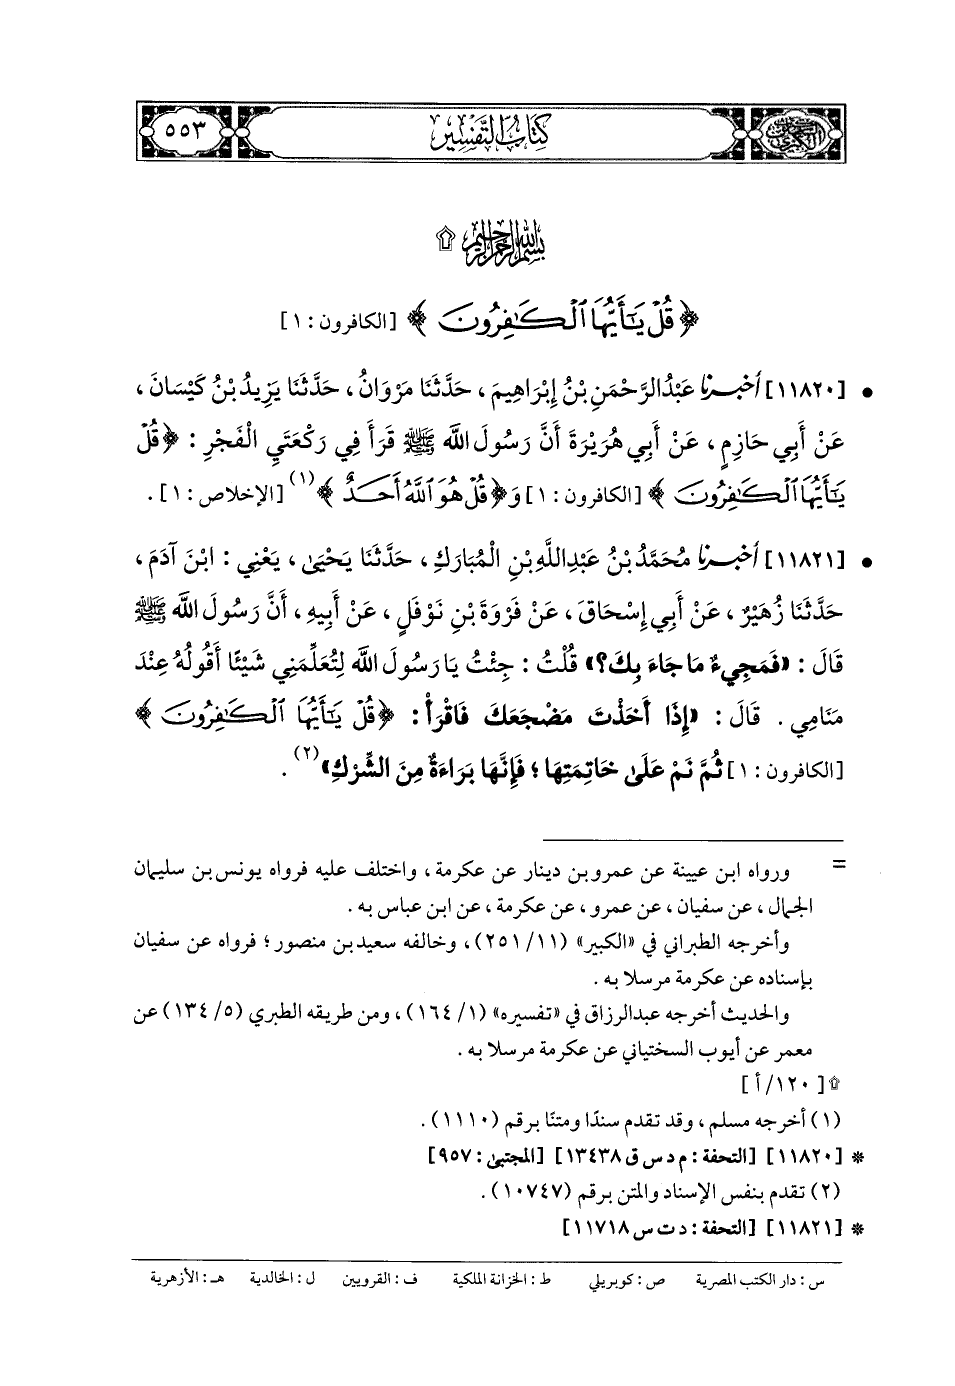 السنن الكبرى كتاب التفسير ٥٥٣
بسم الله الرحمن الرحيم ۩
﴿ قُلْ يَٰٓأَيُّهَا ٱلْكَٰفِرُونَ ﴾ [الكافرون : ١]
• [١١٨٢٠] أخبرنا عَبْدُالرَّحْمَنِ بْنُ إِبْرَاهِيمَ ، حَدَّثَنَا مَرْوَانُ ، حَدَّثَنَا يَزِيدُ بْنُ كَيْسَانَ ،
عَنْ أَبِي حَازِمٍ ، عَنْ أَبِي هُرَيْرَةَ أَنَّ رَسُولَ اللَّه ﷺ قَرَأَ فِي رَكْعَتَيِ الْفَجْرِ : ﴿ قُلْ
يَٰٓأَيُّهَا ٱلْكَٰفِرُونَ ﴾ [الكافرون : ١] وَ﴿ قُلْ هُوَ ٱللَّهُ أَحَدٌ ﴾(١) [الإخلاص : ١] .
• [١١٨٢١] أخبرنا مُحَمَّدُ بْنُ عَبْدِاللَّهِ بْنِ الْمُبَارَكِ ، حَدَّثَنَا يَحْيَىٰ ، يَعْنِي : ابْنَ آدَمَ ،
حَدَّثَنَا زُهَيْرٌ ، عَنْ أَبِي إِسْحَاقَ ، عَنْ فَرْوَةَ بْنِ نَوْفَلٍ ، عَنْ أَبِيهِ ، أَنَّ رَسُولَ اللَّه ﷺ
قَالَ : «فَمَجِيءٌ مَا جَاءَ بِكَ؟» قُلْتُ : جِئْتُ يَا رَسُولَ اللَّه لِتُعَلِّمَنِي شَيْئًا أَقُولُهُ عِنْدَ
مَنَامِي . قَالَ : «إِذَا أَخَذْتَ مَضْجَعَكَ فَاقْرَأْ : ﴿ قُلْ يَٰٓأَيُّهَا ٱلْكَٰفِرُونَ ﴾
[الكافرون : ١] ثُمَّ نَمْ عَلَىٰ خَاتِمَتِهَا ؛ فَإِنَّهَا بَرَاءَةٌ مِنَ الشِّرْكِ»(٢) .
= ورواه ابن عيينة عن عمرو بن دينار عن عكرمة ، واختلف عليه فرواه يونس بن سليمان
الجمال ، عن سفيان ، عن عمرو ، عن عكرمة ، عن ابن عباس به .
وأخرجه الطبراني في «الكبير» (١١/ ٢٥١) ، وخالفه سعيد بن منصور ؛ فرواه عن سفيان
بإسناده عن عكرمة مرسلا به .
والحديث أخرجه عبدالرزاق في «تفسيره» (١/ ١٦٤) ، ومن طريقه الطبري (٥/ ١٣٤) عن
معمر عن أيوب السختياني عن عكرمة مرسلا به .
۩ [١٢٠/أ]
(١) أخرجه مسلم ، وقد تقدم سندًا ومتنًا برقم (١١١٠) .
* [١١٨٢٠] [التحفة : م د س ق ١٣٤٣٨] [المجتبىٰ : ٩٥٧]
(٢) تقدم بنفس الإسناد والمتن برقم (١٠٧٤٧) .
* [١١٨٢١] [التحفة : د ت س ١١٧١٨]
س : دار الكتب المصرية ص : كوبريلي ط : الخزانة الملكية ف : القرويين ل : الخالدية هـ : الأزهرية